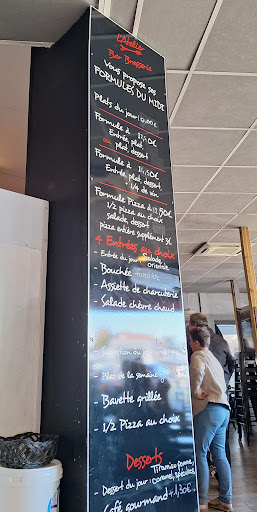 L'Atelier
Bar Brasserie
Vous propose ses
FORMULES DU MIDI
Plats du jour 10,00€
Formule à 13,50€
Entrée, plat
ou plat, dessert
Formule à 16,50€
Entrée, plat, dessert
+ 1/4 de vin
Formule Pizza à 13,50€
1/2 pizza au choix
salade, dessert
pizza entière supplément 3€
4 Entrées au choix
- Entrée du jour Salade orientale
- Bouchée forestière
- Assiette de charcuterie
- Salade chèvre chaud
- Suggestion du
- Plat de la semaine
- Bavette grillée
- 1/2 Pizza au choix
Desserts
- Dessert du jour : Tiramisu pomme, caramel, spéculoos
- Café gourmand +1,30€